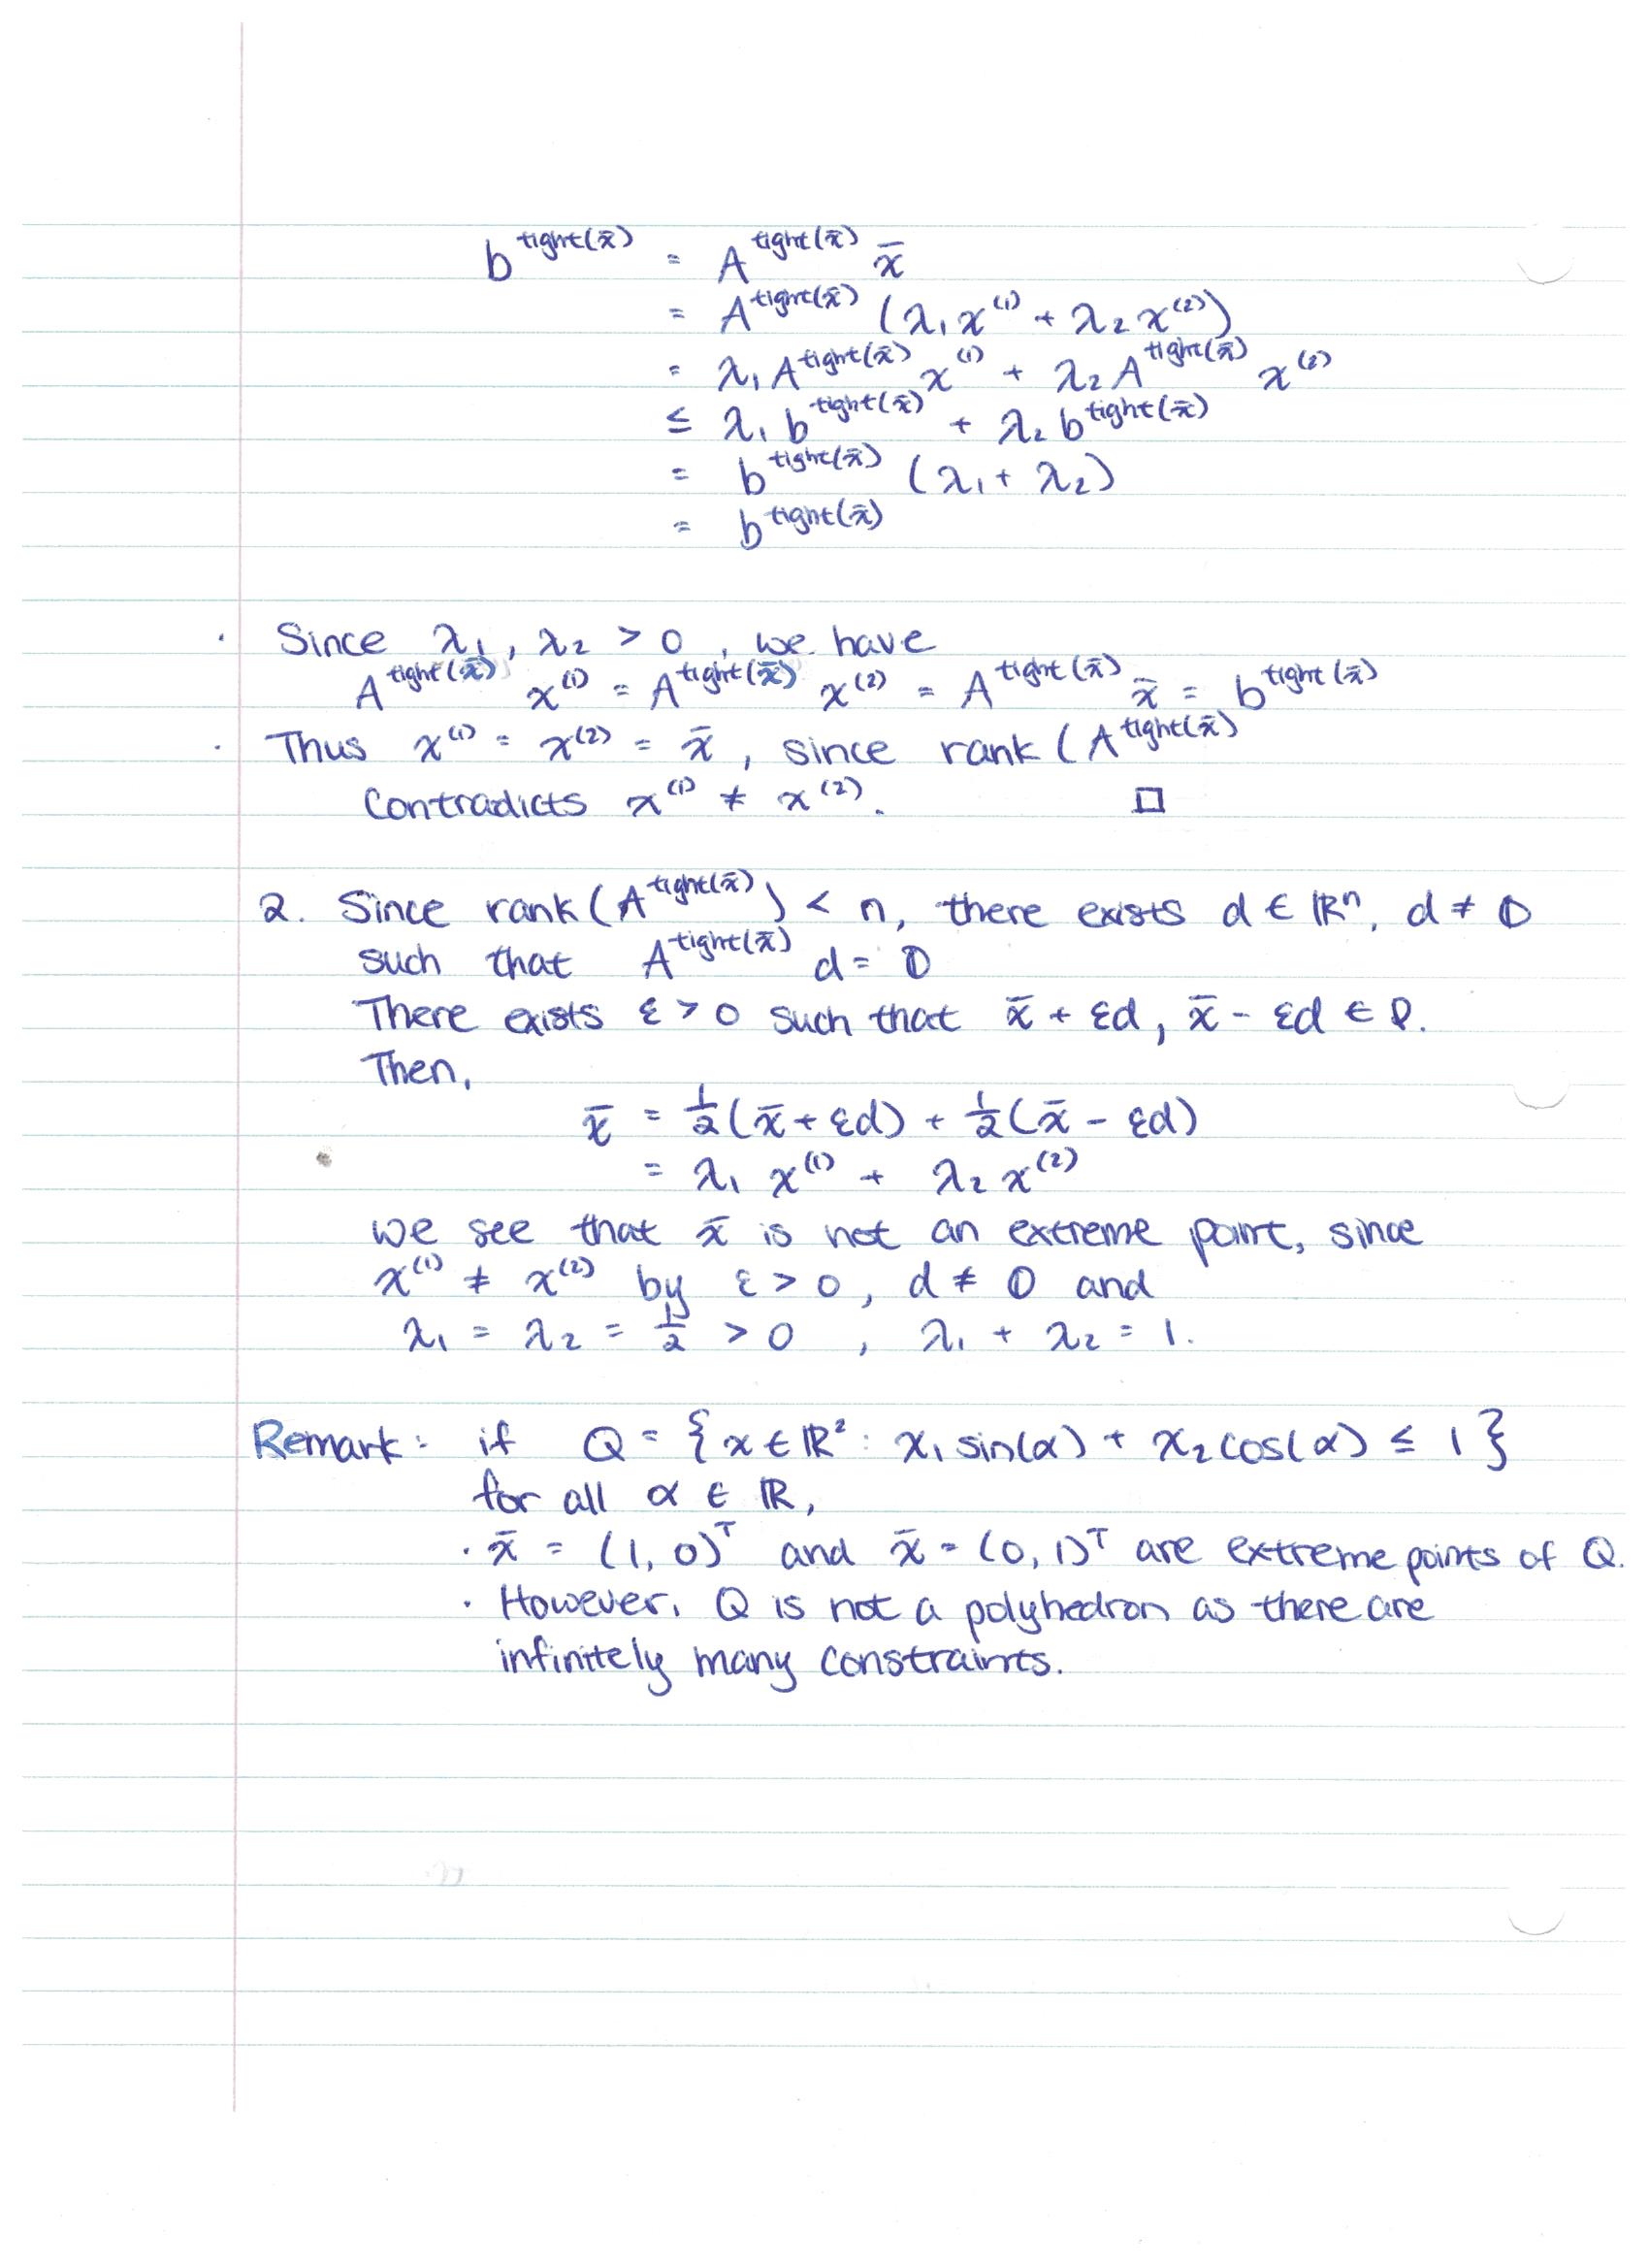 b^tight(x̄) = A^tight(x̄) x̄
= A^tight(x̄) (λ₁x⁽¹⁾ + λ₂x⁽²⁾)
= λ₁A^tight(x̄) x⁽¹⁾ + λ₂A^tight(x̄) x⁽²⁾
≤ λ₁ b^tight(x̄) + λ₂ b^tight(x̄)
= b^tight(x̄) (λ₁ + λ₂)
= b^tight(x̄)
· Since λ₁, λ₂ > 0, we have
A^tight(x̄) x⁽¹⁾ = A^tight(x̄) x⁽²⁾ = A^tight(x̄) x̄ = b^tight(x̄)
· Thus x⁽¹⁾ = x⁽²⁾ = x̄, since rank (A^tight(x̄)
Contradicts x⁽¹⁾ ≠ x⁽²⁾. □
2. Since rank(A^tight(x̄)) < n, there exists d ∈ ℝⁿ, d ≠ 𝟘
such that A^tight(x̄) d = 𝟘
There exists ε > 0 such that x̄ + εd, x̄ - εd ∈ P.
Then,
x̄ = ½(x̄ + εd) + ½(x̄ - εd)
= λ₁ x⁽¹⁾ + λ₂ x⁽²⁾
we see that x̄ is not an extreme point, since
x⁽¹⁾ ≠ x⁽²⁾ by ε > 0, d ≠ 𝟘 and
λ₁ = λ₂ = ½ > 0, λ₁ + λ₂ = 1.
Remark: if Q = {x ∈ ℝ²: x₁ sin(α) + x₂ cos(α) ≤ 1}
for all α ∈ ℝ,
· x̄ = (1, 0)ᵀ and x̄ = (0, 1)ᵀ are extreme points of Q.
· However, Q is not a polyhedron as there are
infinitely many constraints.